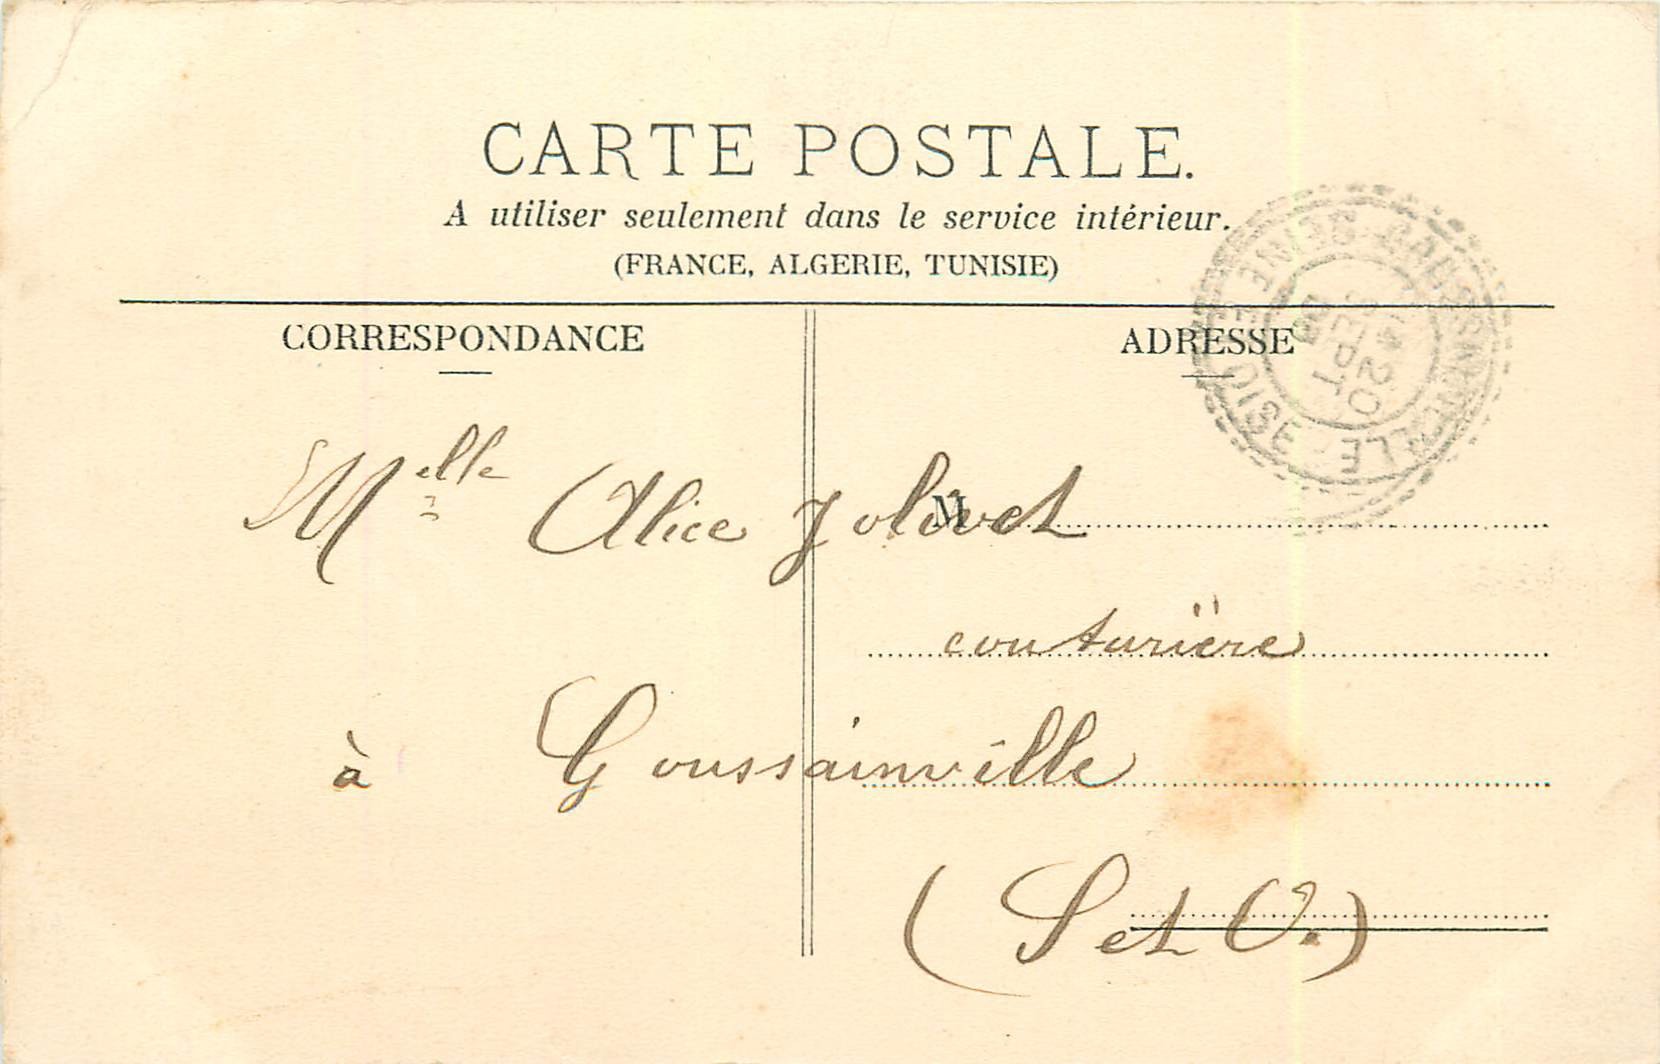 CARTE POSTALE.
A utiliser seulement dans le service intérieur.
(FRANCE, ALGERIE, TUNISIE)
CORRESPONDANCE
ADRESSE
GOUSSAINVILLE
SEINE ET OISE
20
SEPT
M
Melle Alice Jolivet
couturière
à Goussainville
(S et O.)